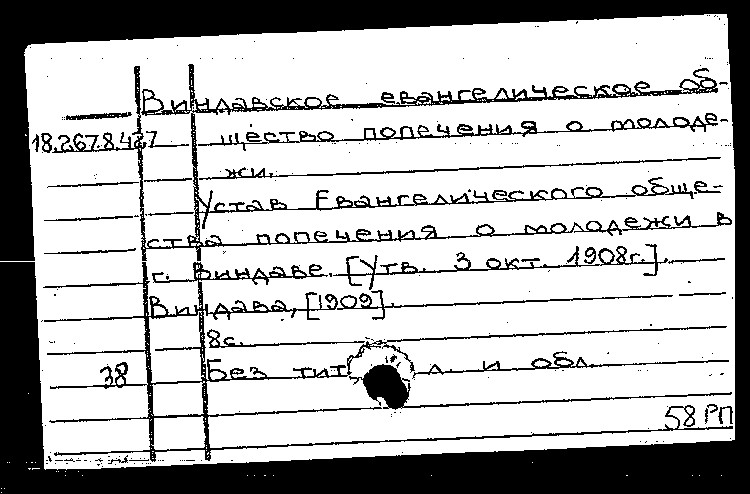 Виндавское евангелическое об-
18.267.8.427 щество попечения о молоде-
жи.
Устав Евангелического обще-
ства попечения о молодежи в
г. Виндаве. [Утв. 3 окт. 1908г.].
Виндава, [1909].
8с.
38 Без тит. л. и обл.
58 РП